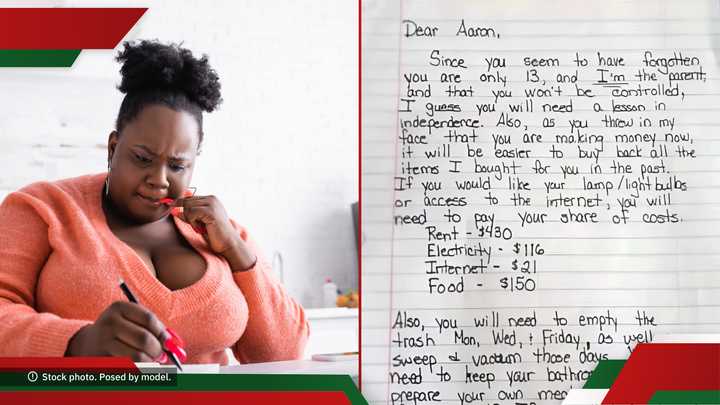 Dear Aaron,
Since you seem to have forgotten
you are only 13, and I'm the parent,
and that you won't be controlled,
I guess you will need a lesson in
independence. Also, as you threw in my
face that you are making money now,
it will be easier to buy back all the
items I bought for you in the past.
If you would like your lamp/lightbulbs
or access to the internet, you will
need to pay your share of costs.
Rent - $430
Electricity - $116
Internet - $21
Food - $150
Also, you will need to empty the
trash Mon, Wed, + Friday, as well
sweep & vacuum those days
need to keep your
prepare your own
Stock photo. Posed by model.